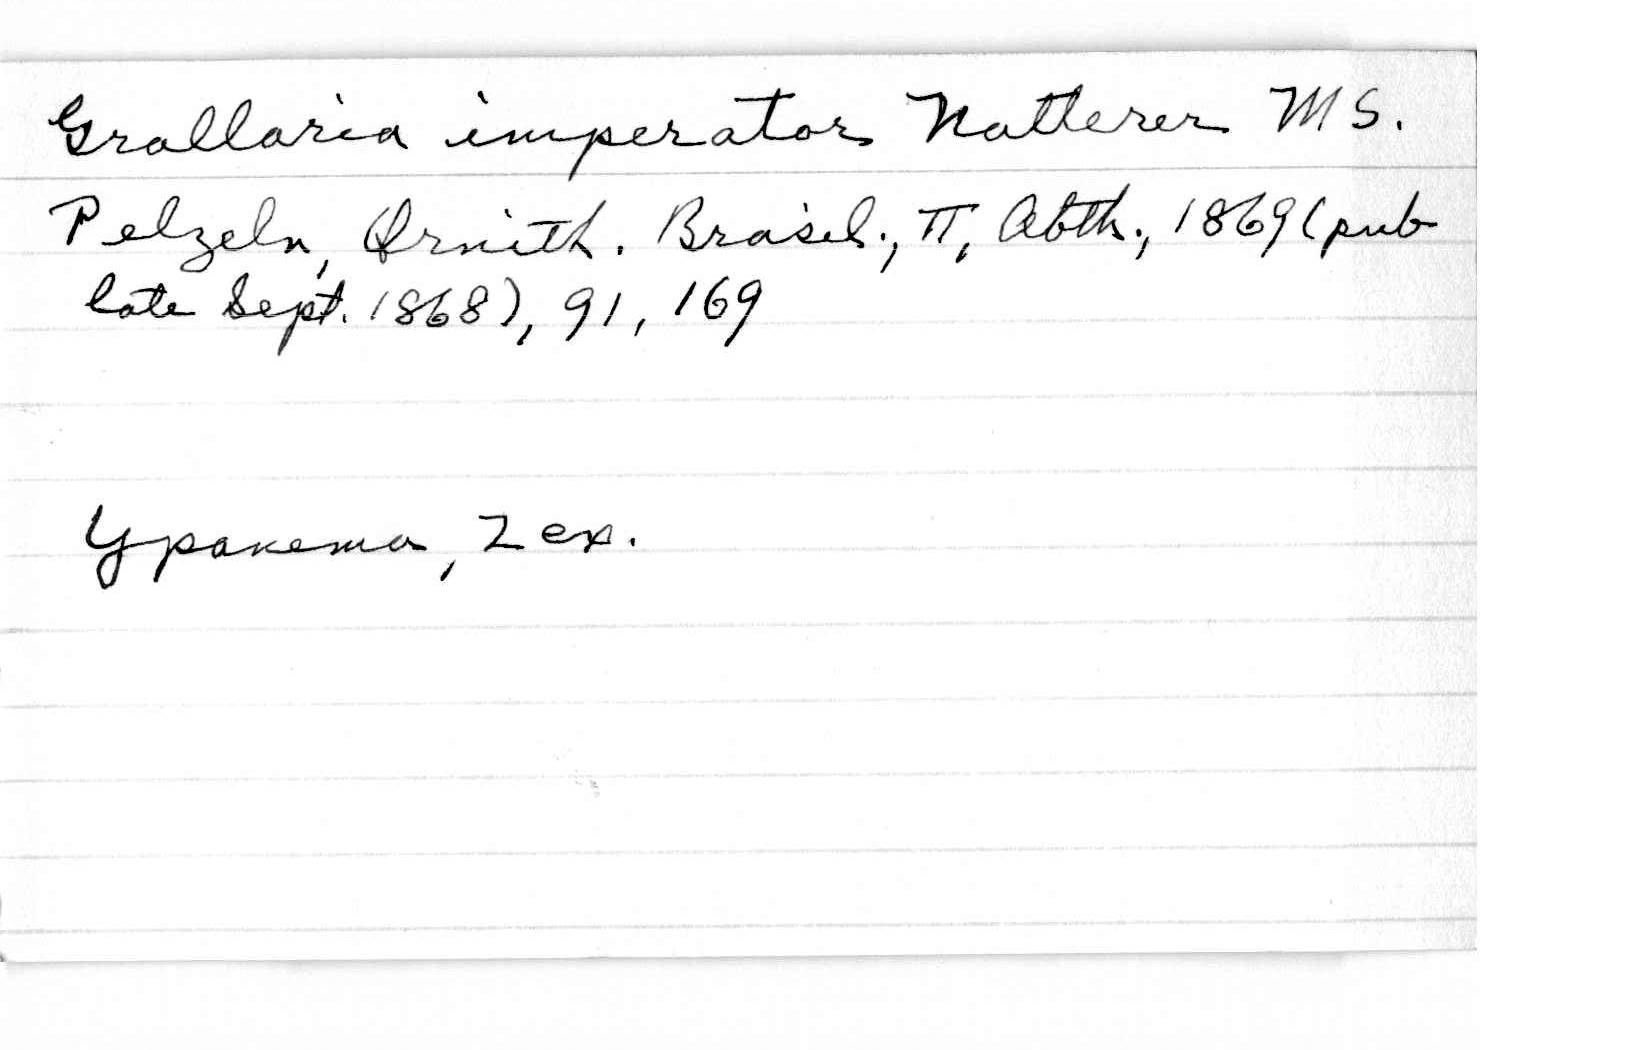 Grallaria imperator Natterer MS.
Pelzeln, Ornith. Brasil., II, Abth., 1869 (pub
late Sept. 1868), 91, 169
Ypanema, 2 ex.